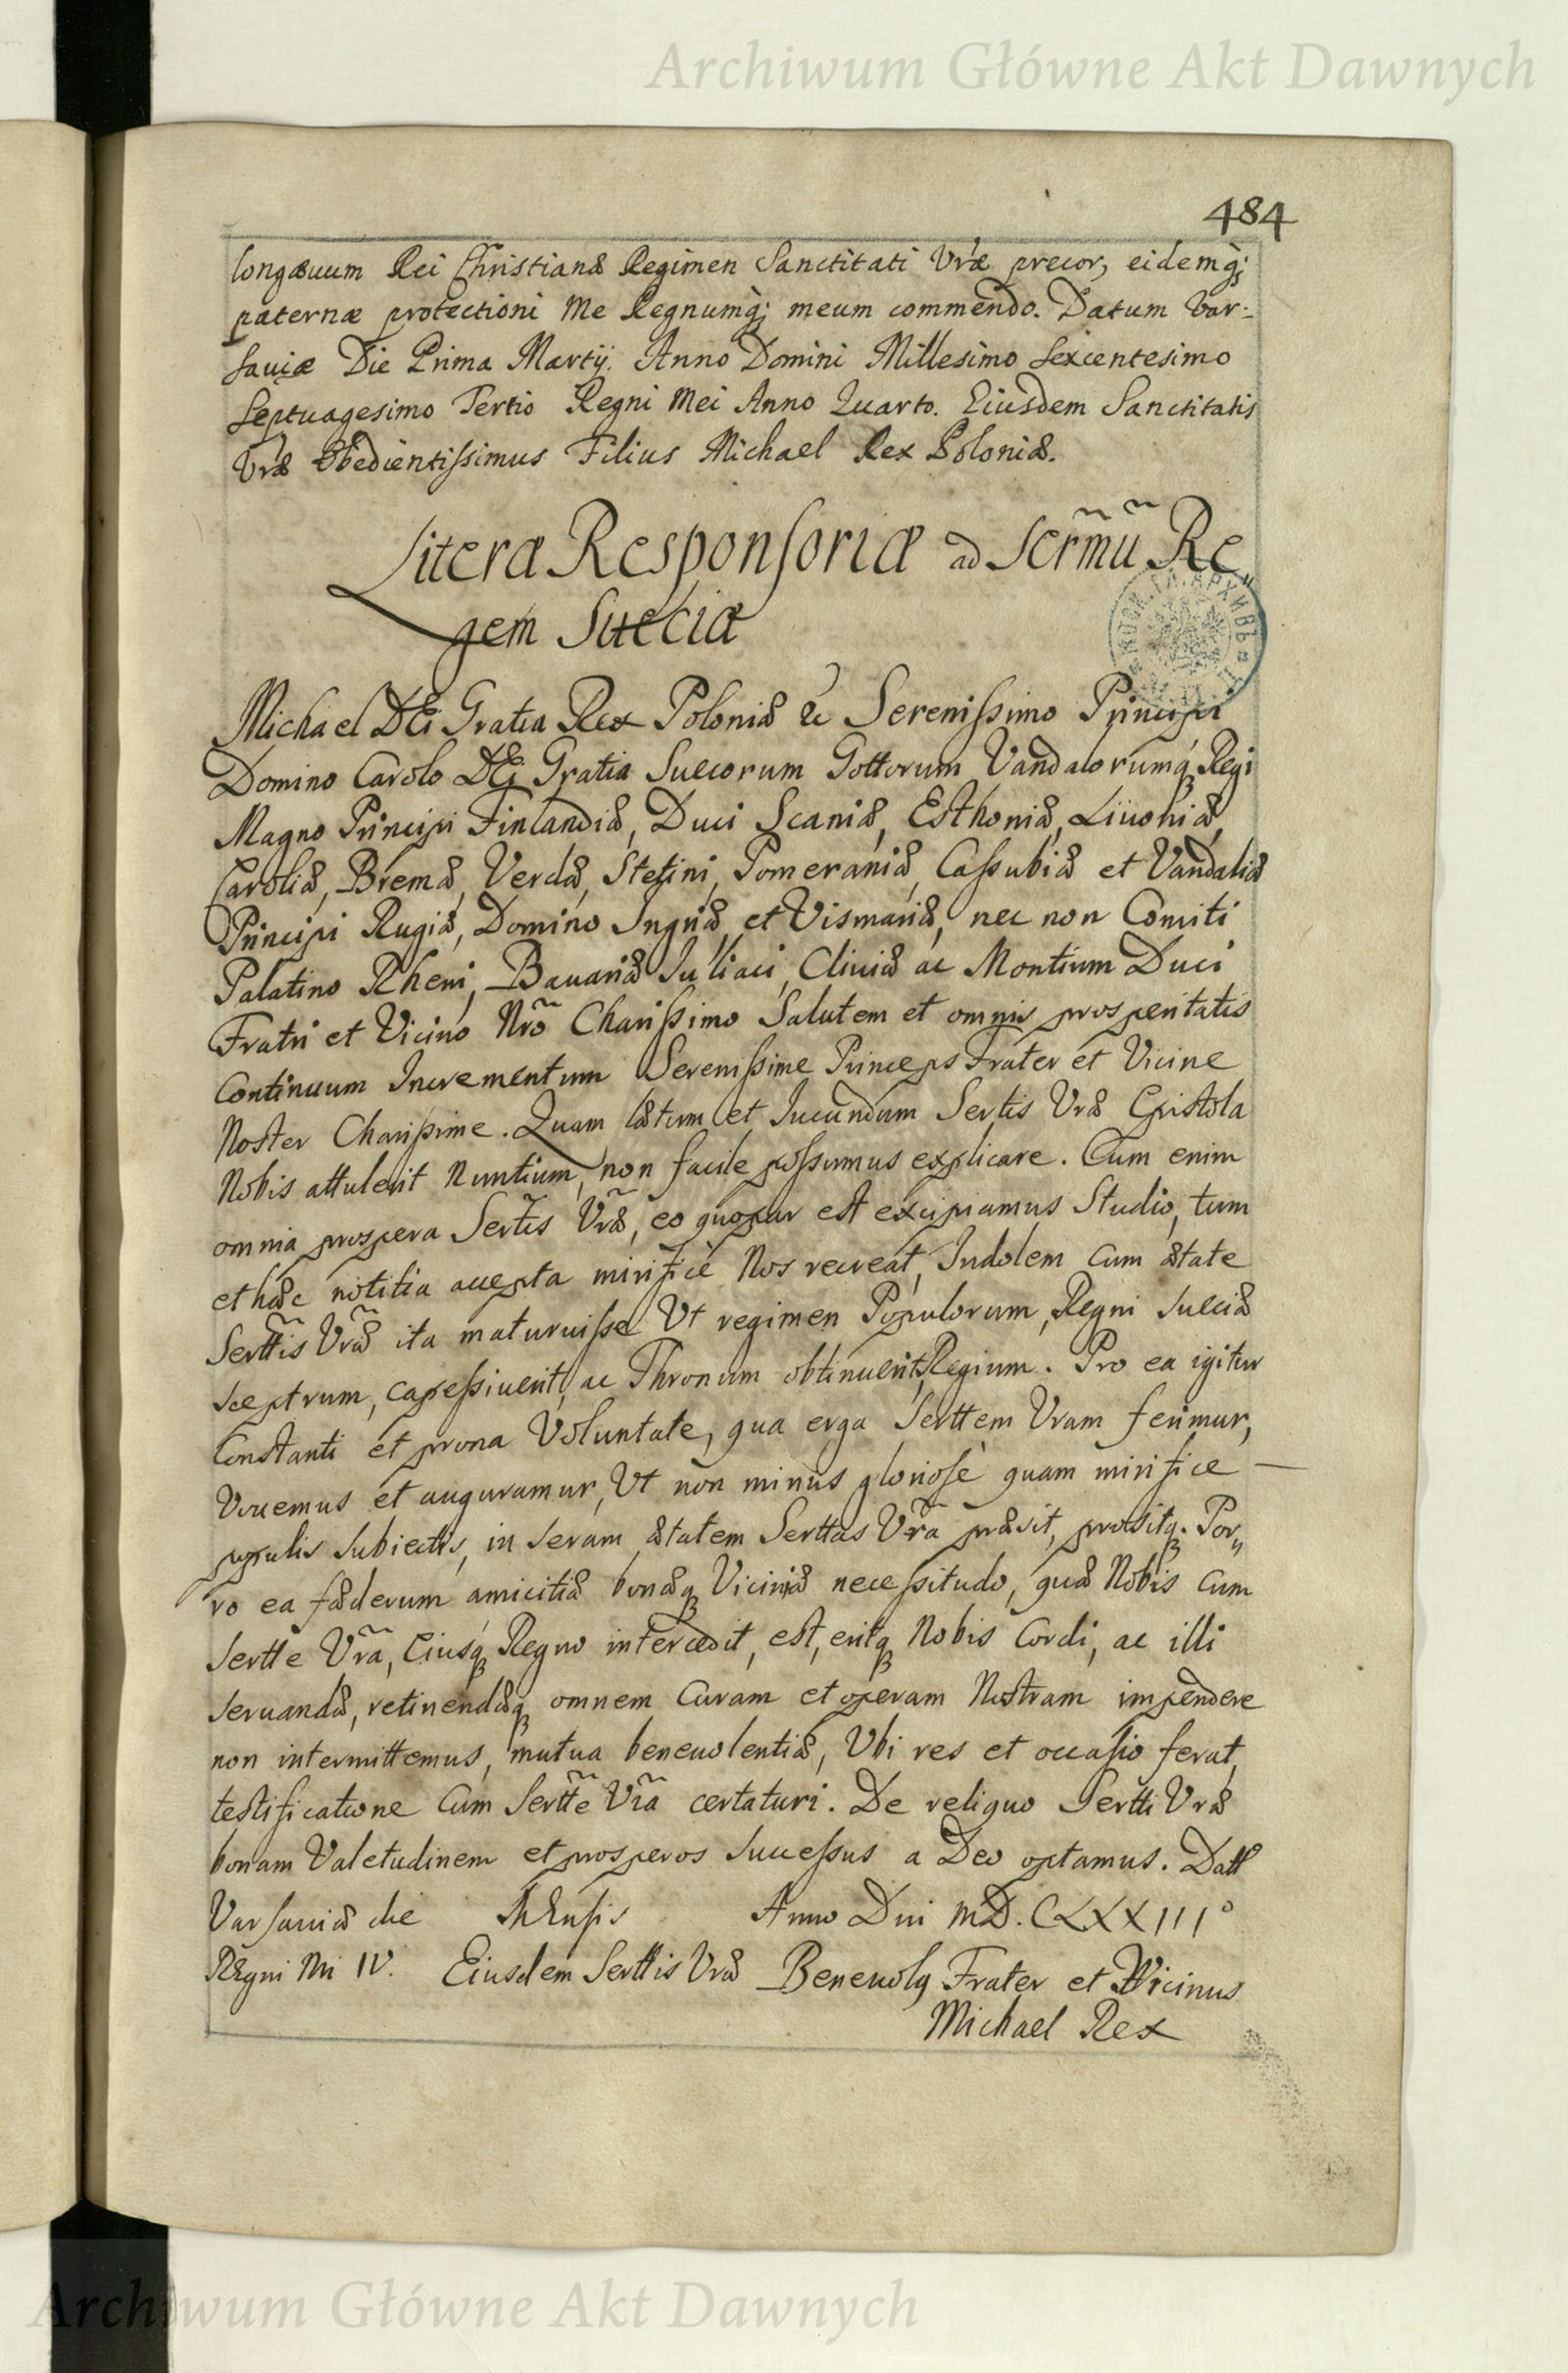 Archiwum Główne Akt Dawnych
484
longæuum Rei Christianæ Regimen Sanctitati Vræ precor, eidemq;
paternæ protectioni Me Regnumq; meum commendo. Datum Var:
sauiæ Die Prima Martij. Anno Domini Millesimo Sexcentesimo
Septuagesimo Tertio Regni Mei Anno Quarto. Eiusdem Sanctitatis
Vræ Obedientissimus Filius Michael Rex Poloniæ.
Literæ Responsoriæ ad Sermũ Re„
gem Sueciæ
Michael DEi Gratia Rex Poloniæ &c Serenissimo Principi
Domino Carolo DEi Gratia Suecorum Gottorum Vandalorumq Regi
Magno Principi Finlandiæ, Duci Scaniæ, Esthoniæ, Liuoniæ,
Caroliæ, Bremæ, Verdæ, Stetini, Pomeraniæ, Cassubiæ et Vandaliæ
Principi Rugiæ, Domino Ingriæ et Vismariæ, nec non Comiti
Palatino Rheni, Bauariæ Iuliaci, Cliuiæ ac Montium Duci
Fratri et Vicino Nrõ Charissimo Salutem et omnis prosperitatis
Continuum Incrementum Serenissime Princeps Frater et Vicine
Noster Charissime. Quam lætum et Iucundum Sertis Vræ Epistola
Nobis attulerit Nuntium, non facile possumus explicare. Cum enim
omnia prospera Sertis Vræ, eo quo par est excipiamus Studio, tum
et hæc notitia accepta mirificè Nos recreat, Indolem Cum ætate
Serttis Vræ ita maturuisse Vt regimen Populorum, Regni Sueciæ
Sceptrum, capessiuerit, ac Thronum obtinuerit Regium. Pro ea igitur
Constanti et prona Voluntate, qua erga Serttem Vram ferimur,
Vouemus et auguramur, Vt non minus gloriosè quam mirifice
populis Subiectis, in Seram ætatem Serttas Vrã præsit, prositq. Por„
ro ea fæderum amicitiæ bonæq Viciniæ necessitudo, quæ Nobis Cum
Sertte Vrã, Eiusq Regno intercedit, est, eritq Nobis Cordi, ac illi
Seruandæ, retinendæq omnem Curam et operam Nostram impendere
non intermittemus, mutua beneuolentiæ, Vbi res et occasio ferat,
testificatione Cum Sertte Vrã certaturi. De reliquo Sertti Vræ
bonam Valetudinem et prosperos Successus a Deo optamus. Datt
Varsauiæ die MEnsis Anno Dni MD.CLXXIII°
REgni Mi IV. Eiusdem Serttis Vræ Beneuolq Frater et Vicinus
Michael Rex
Archiwum Główne Akt Dawnych